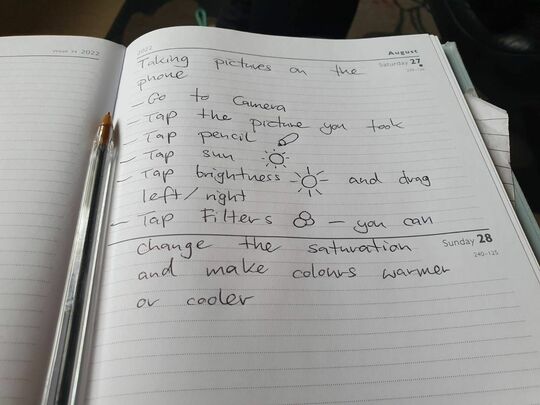 Week 34 2022
2022
August
Saturday 27
Taking pictures on the
phone
- Go to Camera
- Tap the picture you took
- Tap pencil
- Tap sun
- Tap brightness and drag
left/right
- Tap Filters - you can
Sunday 28
240-125
change the saturation
and make colours warmer
or cooler